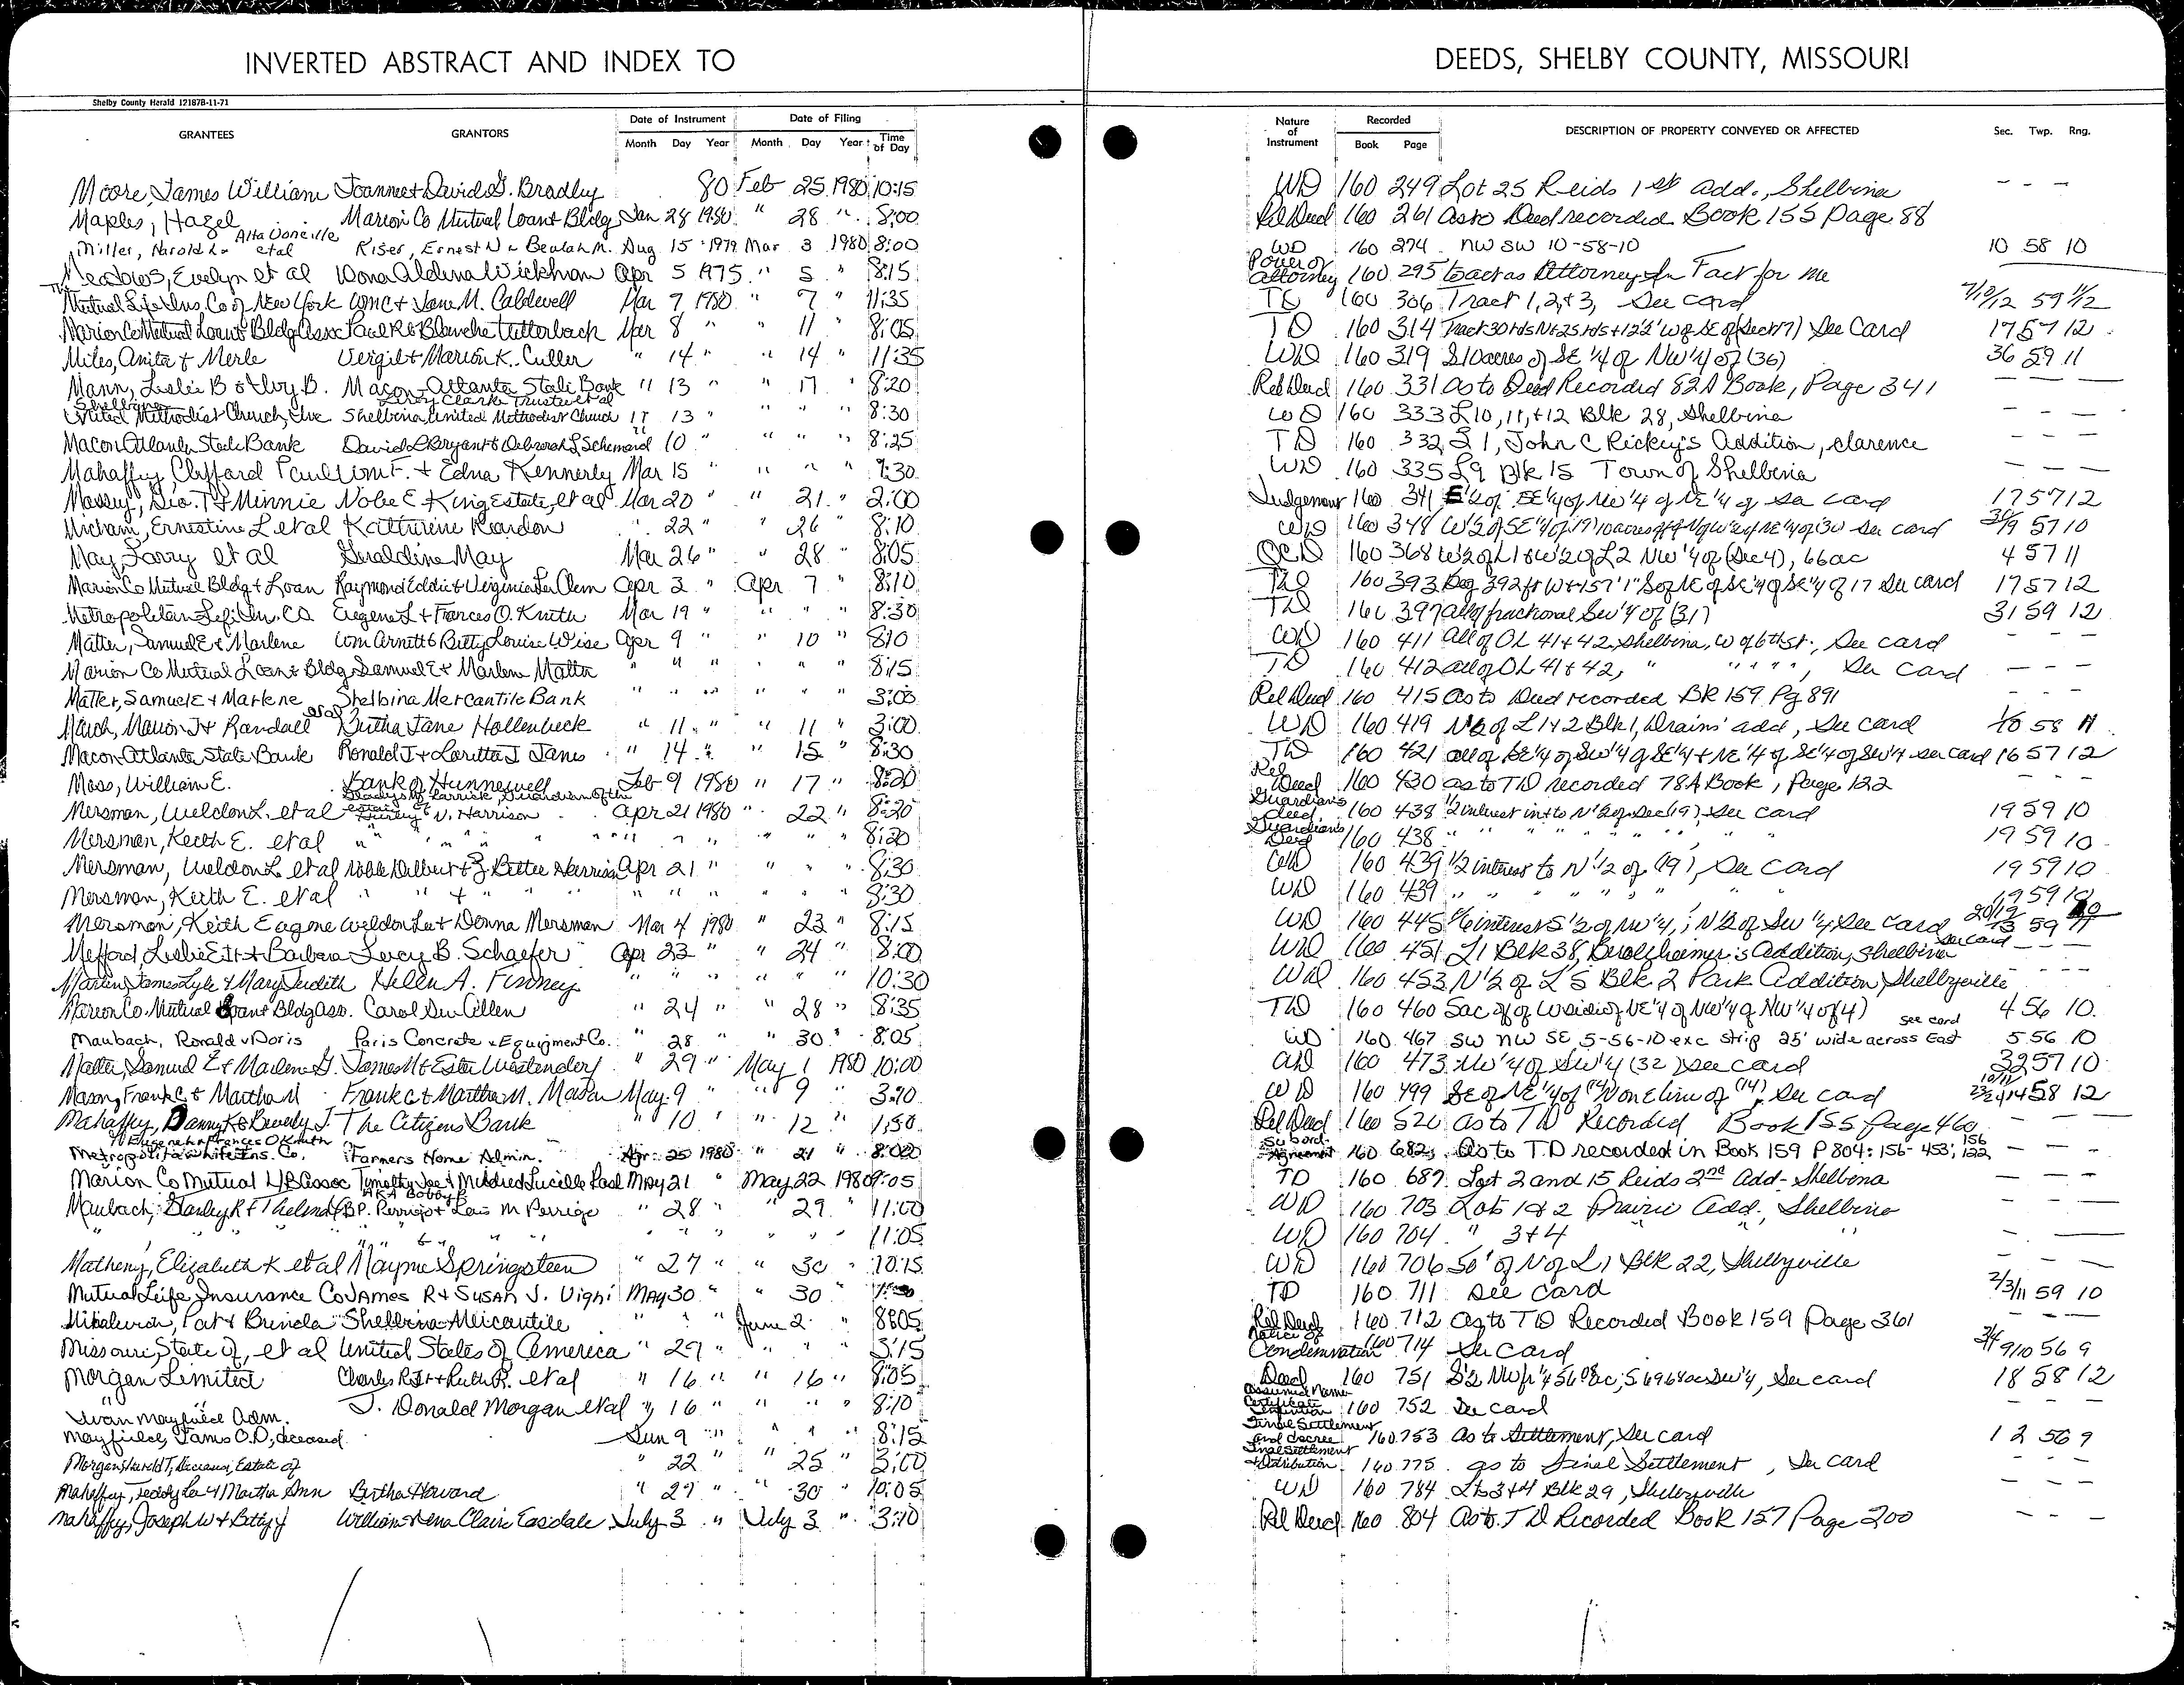 INVERTED ABSTRACT AND INDEX TO DEEDS, SHELBY COUNTY, MISSOURI
Shelby County Herald 12187B-11-71
GRANTEES GRANTORS Date of Instrument Month Day Year Date of Filing Month Day Year Time of Day Nature of Instrument Recorded Book Page DESCRIPTION OF PROPERTY CONVEYED OR AFFECTED Sec. Twp. Rng.
Moore, James William Joanne + David G. Bradley 80 Feb 25 1980 10:15 WD 160 249 Lot 25 Reids 1st add., Shelbina - - -
Maples, Hazel Marion Co Mutual Loan + Bldg Jan 28 1980 " 28 " 8:00 Rel Deed 160 261 as to Deed recorded Book 155 Page 88
Miller, Harold L. Alta Voneille et al Kiser, Ernest N + Beulah M. Aug 15 1979 Mar 3 1980 8:00 WD 160 274 NW SW 10-58-10 10 58 10
Evelyn et al Wona Aldena Wickham Apr 5 1975 " 5 " 8:15 Power of Attorney 160 295 to act as Attorney In Fact for me
The Mutual Life Ins. Co of New York Wm C + Jane M. Caldwell Mar 7, 1980 " 7 " 11:35 TD 160 306 Tract 1, 2, + 3, See card 59
Marion Co Mutual Loan + Bldg Assoc Paul R + Blanche Utterback Mar 8 " " 11 " 8:05 TD 160 314 See Card 17 57 12
Miles, Anita + Merle Vergil + Marion K. Culler " 14 " " 14 " 11:35 WD 160 319 S 10 acres of SE 1/4 of NW 1/4 of (36) 36 59 11
Mann, Leslie B + Ivy B. Macon-Atlanta State Bank " 13 " " 17 " 8:20 Rel Deed 160 331 as to Deed Recorded 82A Book, Page 341 - - -
Shelbina United Methodist Church, Inc Leroy Clark Trustee et al Shelbina United Methodist Church " 13 " " " " 8:30 WD 160 333 L10, 11, + 12 Blk 28, Shelbina - - -
Macon Atlanta State Bank David L Bryant + Deborah L Schemard " 10 " " " " 8:25 TD 160 332 L 1, John C Rickey's Addition, Clarence - - -
Mahaffy, Clyfford Paul Wm F. + Edna Kennerly Mar 15 " " " " 9:30 WD 160 335 L9 Blk 15 Town of Shelbina - - -
Massey, Geo. T + Minnie Nobe E King Estate, et al Mar 20 " " 21 " 2:00 Judgement 160 341 E 1/2 of SE 1/4 of NW 1/4 of NE 1/4 of See card 17 57 12
Ernestine L et al Katherine Reardon " 22 " " 26 " 8:10 WD 160 348 See card 57 10
May, Larry et al Geraldine May Mar 26 " " 28 " 8:05 QCD 160 368 W 1/2 of L1 + W 1/2 of L2 NW 1/4 of (Sec 4), 66ac 4 57 11
Marion Co Mutual Bldg + Loan Raymond Eddie + Virginia Lea Clem Apr 3 " Apr 7 " 8:10 TD 160 393 Beg 392 ft W + 157' 1" S of NE of SE 1/4 of SE 1/4 of 17 See card 17 57 12
Metropolitan Life Ins. Co Eugene L + Frances O. Knuth Mar 19 " " " " 8:30 TD 160 397 all of fractional SW 1/4 of (31) 31 59 12
Matter, Samuel E + Marlene Wm Arnett + Betty Louise Wise Apr 9 " " 10 " 8:10 WD 160 411 all of OL 41 + 42, Shelbina, W of 6th St., See card - - -
Marion Co Mutual Loan + Bldg Samuel E + Marlene Matter " " " " " " 8:15 TD 160 412 all of OL 41 + 42, " " " " ", See card - - -
Matter, Samuel E + Marlene Shelbina Mercantile Bank " " " " " " 3:00 Rel Deed 160 415 as to Deed recorded BK 159 Pg 891 - - -
March, Marion J + Randall et al Bertha Jane Hollenbeck " 11 " " 11 " 3:00 WD 160 419 N 1/2 of L 1 + 2 Blk 1, Drains' add, See card 58 11
Macon-Atlanta State Bank Ronald J + Loretta J Janes " 14 " " 15 " 8:30 TD 160 421 all of SE 1/4 of SW 1/4 of SE 1/4 + NE 1/4 of SE 1/4 of SW 1/4 see card 16 57 12
Moss, William E. Bank of Hunnewell Feb 9 1980 " 17 " 8:20 Rel Deed 160 430 as to TD recorded 78A Book, Page 122 - - -
Mersman, Weldon L. et al Guardian of the estate of N. Harrison Apr 21 1980 " 22 " 8:20 Guardians deed 160 438 1/2 interest in + to N 1/2 of Sec (19), See card 19 59 10
Mersman, Keith E. et al " " " " " " " " " " 8:20 Guardians Deed 160 438 " " " " " " 19 59 10
Mersman, Weldon L. et al Noble Delbert + Z Bettee Harrison Apr 21 " " " " 8:30 WD 160 439 1/2 interest to N 1/2 of (19), See card 19 59 10
Mersman, Keith E. et al " " + " " " " " " " 8:30 WD 160 439 " " " " " " 19 59 10
Mersman, Keith Eugene Weldon Lee + Donna Mersman Mar 4 1980 " 23 " 8:15 WD 160 445 interest S 1/2 of NW 1/4, ; N 1/2 of SW 1/4 See card 59
Mefford Leslie E + Barbara Lucy B. Schaefer Apr 23 " " 24 " 8:00 WD 160 451 L1 Blk 38, Addition, Shelbina see card - - -
Martin, James Lyle + Mary Judith Helen A. Finney " " " " " " 10:30 WD 160 453 N 1/2 of L 5 Blk 2 Park Addition, Shelbyville - - -
Marion Co. Mutual Loan + Bldg Ass. Carol Sue Cillen " 24 " " 28 " 8:35 TD 160 460 5ac off of W side of NE 1/4 of NW 1/4 of NW 1/4 of 4) see card 4 56 10
Maubach, Ronald + Doris Paris Concrete + Equipment Co. " 28 " 30 " 8:05 WD 160 467 SW NW SE 5-56-10 exc strip 25' wide across East 5 56 10
Matter, Samuel E + Marlene G. James M + Ester Westendorf " 29 " May 1 1980 10:00 WD 160 473 NW 1/4 of SW 1/4 (32) See card 32 57 10
Mason, Frank C + Martha M Frank C + Martha M. Mason May 9 " " 9 " 3:20 WD 160 499 SE of NE 1/4 of See card 58 12
Mahaffey, Danny K + Beverly J. The Citizens Bank " 10 " " 12 " 1:50 Rel Deed 160 520 as to TD Recorded Book 155 Page 460 - - -
% Eugene L + Frances O Knuth Metropolitan Life Ins. Co. Farmers Home Admin. Apr. 25 1980 " 21 " 8:00 Subord. Agreement 160 682 As to T.D recorded in Book 159 P 804: 156-453; 156 122 - - -
Marion Co Mutual L/B Assoc Timothy Joe + Mildred Lucille Rash May 21 " May 22 1980 9:05 TD 160 687 Lot 2 and 15 Reids 2nd Add - Shelbina - - -
Maubach, Stanley R + Thelma AKA Bobby P. (B.P. Perrigo + Lois M Perrigo " 28 " " 29 " 11:00 WD 160 703 Lots 1 + 2 Prairie Add., Shelbina - - -
" " " " " " + " " " " " " " " 11:05 WD 160 704 " 3 + 4 " " - -
Matheny, Elizabeth K et al Mayme Springsteen " 27 " " 30 " 10:15 WD 160 706 50' of N of L1 Blk 22, Shelbyville - - -
Mutual Life Insurance Co James R + Susan J. Vighi May 30 " " 30 " TD 160 711 See card 2/3/11 59 10
Pat + Brenda Shelbina Mercantile " " " June 2 " 8:05 Rel Deed 160 712 as to TD Recorded Book 159 Page 361 - - -
Missouri, State of, et al United States of America " 29 " " " " 3:15 Notice of Condemnation 160 714 See Card 3/4 9/10 56 9
Morgan Limited Charles R. Jr + Ruth R. et al " 16 " " 16 " 8:05 Deed 160 751 See card 18 58 12
" J. Donald Morgan et al " 16 " " " " 8:10 Assumed Name Certificate 160 752 See card - - -
Ivan Mayfield Adm. Mayfield, James O.D., deceased Jun 9 " " " " 8:15 Final Settlement and decree 160 753 as to Settlement, See card 1 2 56 9
Morgan, Harold T, Deceased, Estate of " 22 " " 25 " 3:00 Final Settlement + Distribution 160 775 as to Final Settlement, See card - - -
Mahaffey, Teddy Lee + Martha Ann Bertha Howard " 27 " " 30 " 10:05 WD 160 784 Lts 3 + 4 Blk 29, Shelbyville - - -
Mahaffey, Joseph W + Betty J William + Rena Claire Easdale July 3 " July 3 " 3:10 Rel Deed 160 804 As to TD Recorded Book 157 Page 200 - - -